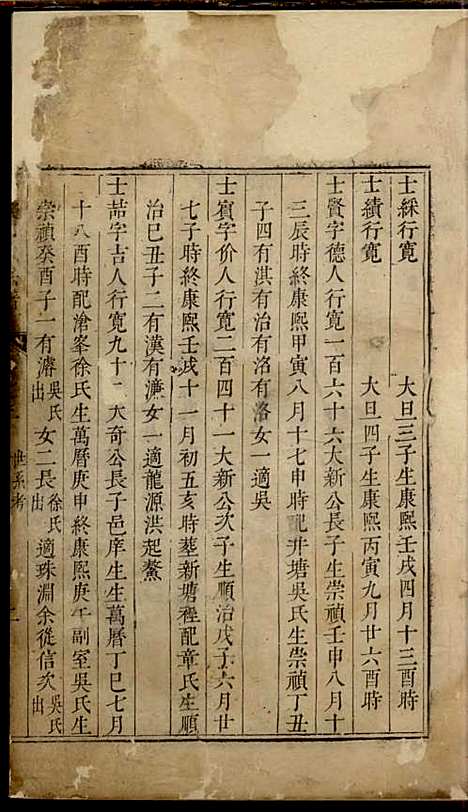 士綵行寬 大旦三子生康熙壬戌四月十三酉時
士績行寬 大旦四子生康熙丙寅九月廿六酉時
士賢字德人行寬一百六十六大新公長子生崇禎壬申八月十
三辰時終康熙甲寅八月十七申時配井塘吳氏生崇禎丁丑
子四有淇有治有洛有洛女一適吳
士賓字价人行寬二百四十一大新公次子生順治戊子六月廿
七子時終康熙壬戌十一月初五亥時葬新塘裡配章氏生順
治已丑子二有漢有漉女一適龍源洪起鰲
士喆字吉人行寬九十二大奇公長子邑庠生生萬曆丁巳七月
十八酉時配滄峯徐氏生萬曆庚申終康熙庚午副室吳氏生
崇禎癸酉子一有濬吳氏出女二長徐氏出適珠淵余從信次吳氏出
世系考